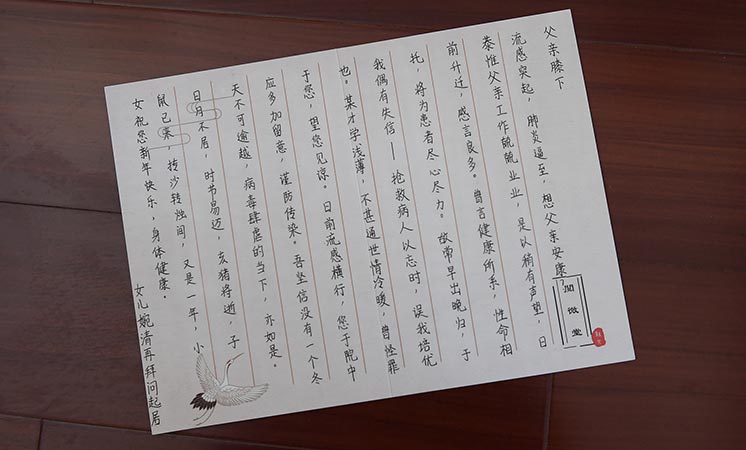 父亲膝下
流感突起，肺炎逼至，想父亲安康，
泰惟父亲工作兢兢业业，是以稍有声望，日
前升迁，感言良多。曾言健康所系，性命相
托，将为患者尽心尽力。故常早出晚归，于
我偶有失信——抢救病人以忘时，误我培优
也。某才学浅薄，不甚通世情冷暖，曾怪罪
于您，望您见谅。日前流感横行，您于院中
应多加留意，谨防传染。吾坚信没有一个冬
天不可逾越，病毒肆虐的当下，亦如是。
日月不居，时节易迈，亥猪将逝，子
鼠已来，抟沙转烛间，又是一年，小
女祝您新年快乐，身体健康。
女儿婉清再拜问起居
閱微堂